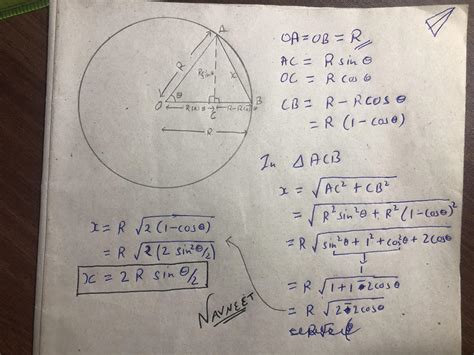 A
R
R sinθ
x
θ
O
R cosθ
C
B
R
OA = OB = R
AC = R sinθ
OC = R cosθ
CB = R - R cosθ
= R (1 - cosθ)
In △ACB
x = √AC² + CB²
= √R² sin²θ + R² (1 - cosθ)²
= R √sin²θ + 1² + cos²θ + 2cosθ
1
= R √1 + 1 - 2cosθ
= R √2 - 2cosθ
x = R √2(1 - cosθ)
= R √2(2 sin²θ/2)
x = 2 R sin θ/2
NAVNEET